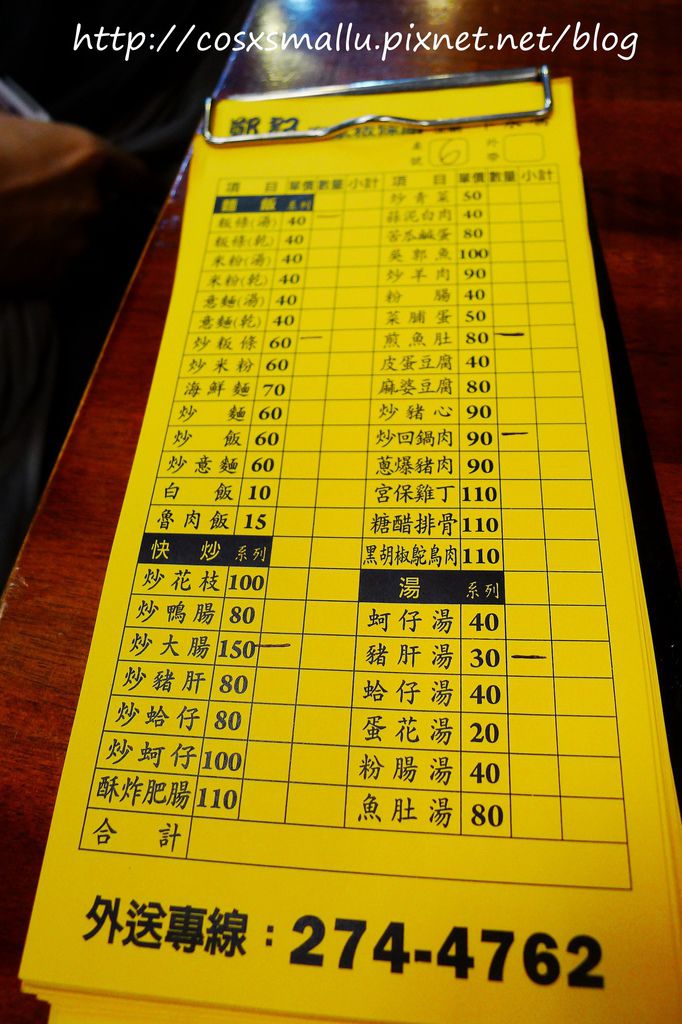 http://cosxsmallu.pixnet.net/blog
桌號 6 外帶
項目 單價 數量 小計
麵飯 系列
粄條(湯) 40 一
粄條(乾) 40
米粉(湯) 40
米粉(乾) 40
意麵(湯) 40
意麵(乾) 40
炒粄條 60 一
炒米粉 60
海鮮麵 70
炒麵 60
炒飯 60
炒意麵 60
白飯 10
魯肉飯 15
快炒 系列
炒花枝 100
炒鴨腸 80
炒大腸 150 一
炒豬肝 80
炒蛤仔 80
炒蚵仔 100
酥炸肥腸 110
合計
項目 單價 數量 小計
炒青菜 50
蒜泥白肉 40
苦瓜鹹蛋 80
吳郭魚 100
炒羊肉 90
粉腸 40
菜脯蛋 50
煎魚肚 80 一
皮蛋豆腐 40
麻婆豆腐 80
炒豬心 90
炒回鍋肉 90 一
蔥爆豬肉 90
宮保雞丁 110
糖醋排骨 110
黑胡椒鴕鳥肉 110
湯 系列
蚵仔湯 40
豬肝湯 30 一
蛤仔湯 40
蛋花湯 20
粉腸湯 40
魚肚湯 80
外送專線：274-4762